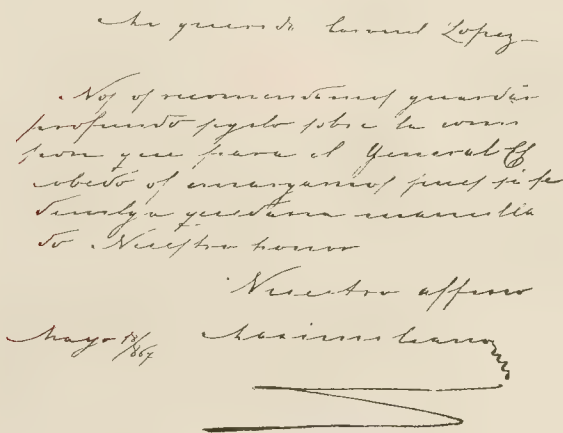 Mi querido Coronel Lopez
Nos os recomendamos guardar
profundo sygelo sobre la comi
sion que para el General Es
cobedo os encargamos pues si se
divulga quedaria mancilla
do Nuestro honor
Nuestro affmo
Mayo 18/1867 Maximiliano